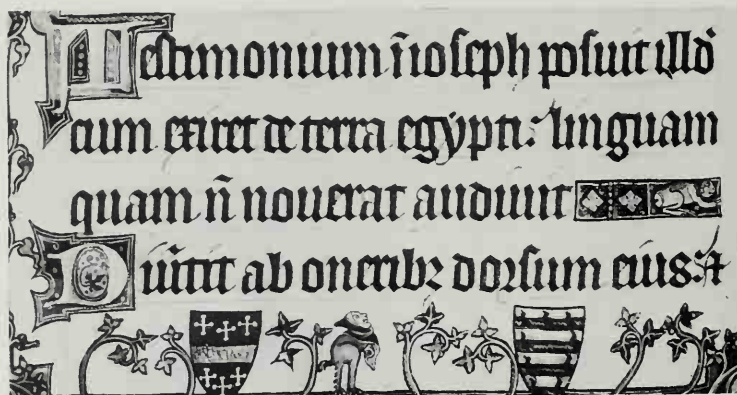 Testimonium n̄ ioseph posuit illd̄
cum exiret de terra egypti: linguam
quam n̄ nouerat audiuit
Diūtit ab oneribꝫ dorsum eius: